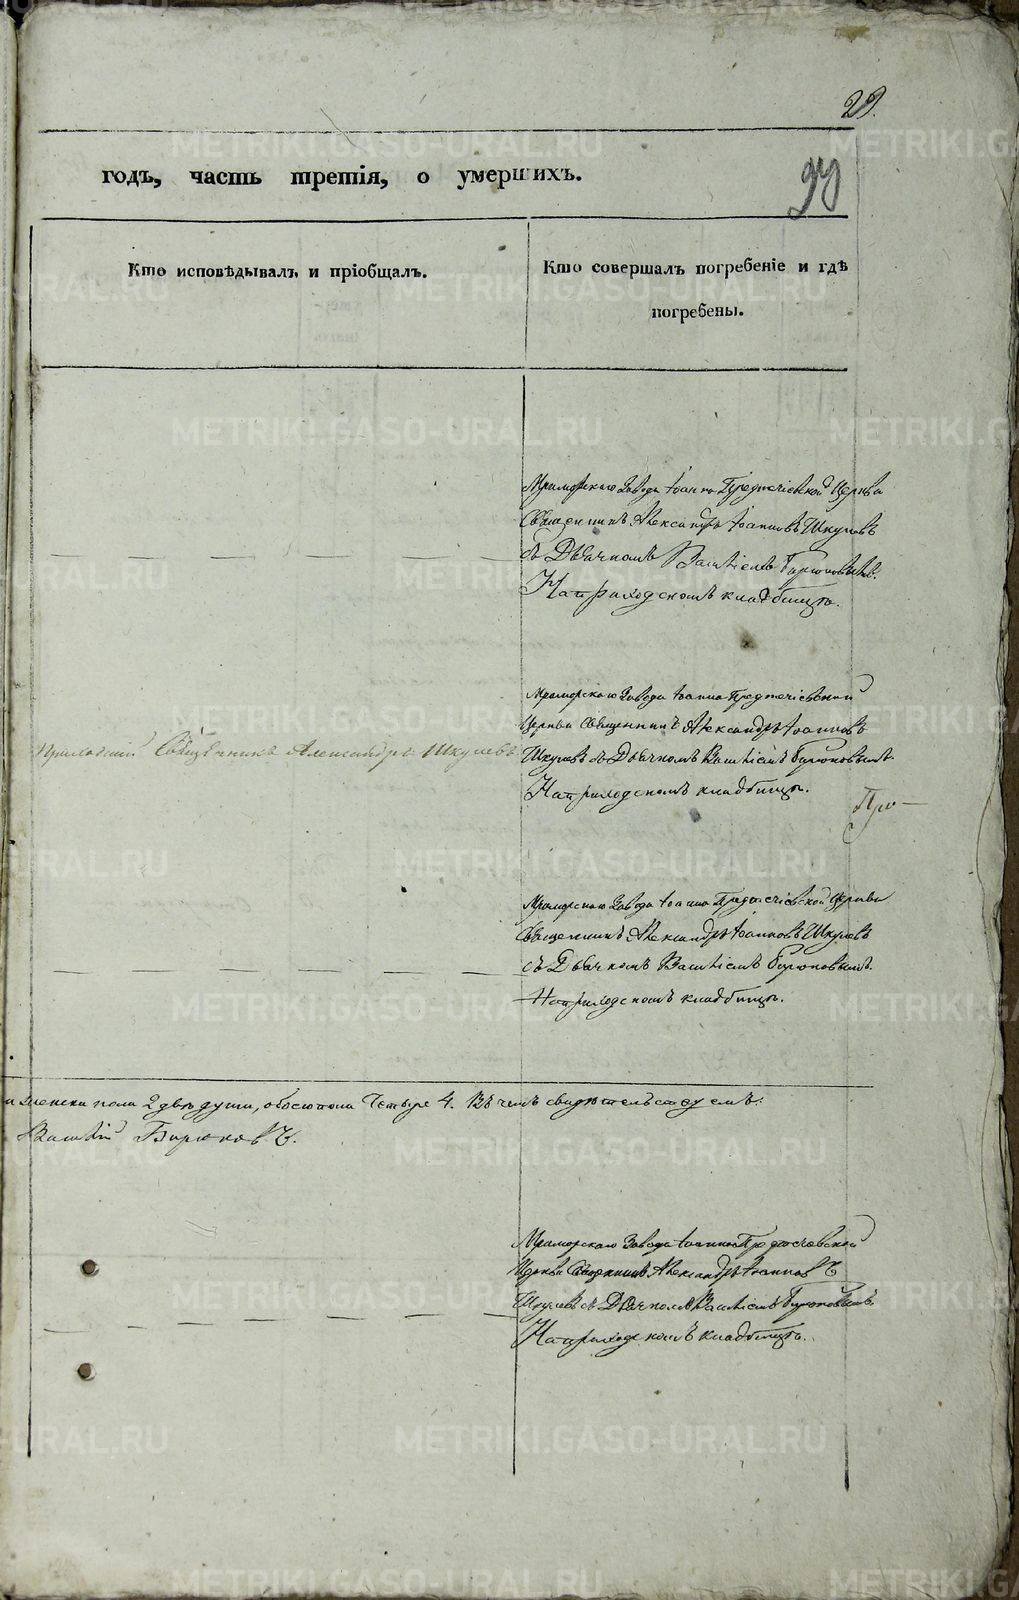 29.
годъ, часть третія, о умершихъ.
Кто исповѣдывалъ и пріобщалъ.
Кто совершалъ погребеніе и гдѣ
погребены.
Мраморскаго Завода Іоанно Предтечіевской Церкви
Священникъ Александръ Іоанновъ Шкулевъ
съ Дьячкомъ Василіемъ Бирюковымъ.
На приходскомъ кладбищѣ.
Приходскій Священникъ Александръ Шкулевъ
Мраморскаго Завода Іоанно Предтечіевской
Церкви Священникъ Александръ Іоанновъ
Шкулевъ съ Дьячкомъ Василіемъ Бирюковымъ.
На приходскомъ кладбищѣ.
Про-
Мраморскаго Завода Іоанно Предтечіевской Церкви
Священникъ Александръ Іоанновъ Шкулевъ
съ Дьячкомъ Василіемъ Бирюковымъ.
На приходскомъ кладбищѣ.
и женска пола 2 двѣ души, обоего пола Четыре 4. Въ чемъ свидѣтельствуемъ:
Василій Бирюковъ.
Мраморскаго Завода Іоанно Предтечевской
Церкви Священникъ Александръ Іоанновъ
Шкулевъ съ Дьячкомъ Василіемъ Бирюковымъ.
На приходскомъ кладбищѣ.
METRIKI.GASO-URAL.RU